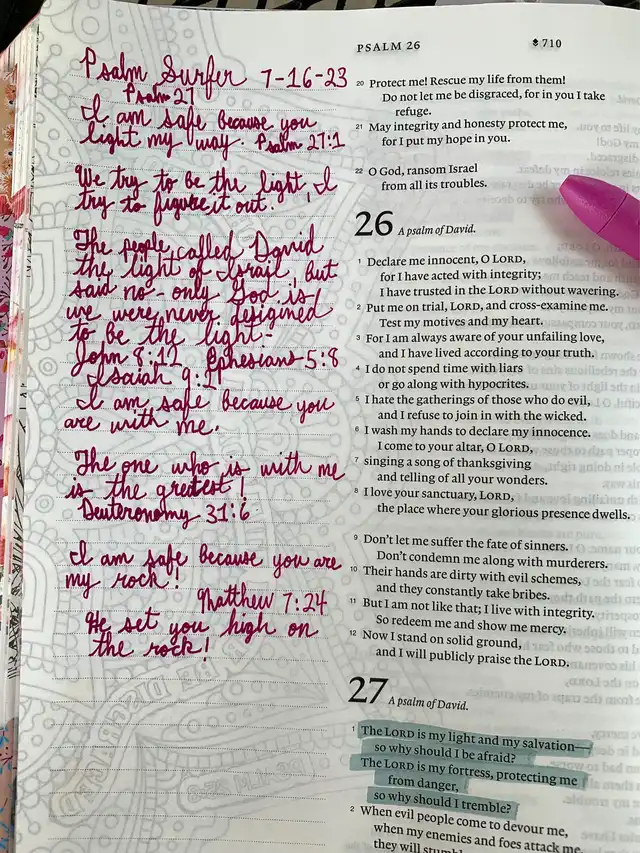 Psalm Surfer 7-16-23
Psalm 27
I am safe because you
light my way. Psalm 27:1
We try to be the light, I
try to figure it out.
The people called David
the light of Israel, but
said no - only God is!
we were never designed
to be the light -
John 8:12 Ephesians 5:8
Isaiah 9:2
I am safe because you
are with me.
The one who is with me
is the greatest!
Deuteronomy 31:6
I am safe because you are
my rock!
Matthew 7:24
He set you high on
the rock!
PSALM 26 710
20 Protect me! Rescue my life from them!
Do not let me be disgraced, for in you I take
refuge.
21 May integrity and honesty protect me,
for I put my hope in you.
22 O God, ransom Israel
from all its troubles.
26 A psalm of David.
1 Declare me innocent, O LORD,
for I have acted with integrity;
I have trusted in the LORD without wavering.
2 Put me on trial, LORD, and cross-examine me.
Test my motives and my heart.
3 For I am always aware of your unfailing love,
and I have lived according to your truth.
4 I do not spend time with liars
or go along with hypocrites.
5 I hate the gatherings of those who do evil,
and I refuse to join in with the wicked.
6 I wash my hands to declare my innocence.
I come to your altar, O LORD,
7 singing a song of thanksgiving
and telling of all your wonders.
8 I love your sanctuary, LORD,
the place where your glorious presence dwells.
9 Don't let me suffer the fate of sinners.
Don't condemn me along with murderers.
10 Their hands are dirty with evil schemes,
and they constantly take bribes.
11 But I am not like that; I live with integrity.
So redeem me and show me mercy.
12 Now I stand on solid ground,
and I will publicly praise the LORD.
27 A psalm of David.
1 The LORD is my light and my salvation—
so why should I be afraid?
The LORD is my fortress, protecting me
from danger,
so why should I tremble?
2 When evil people come to devour me,
when my enemies and foes attack me,
they will stumble